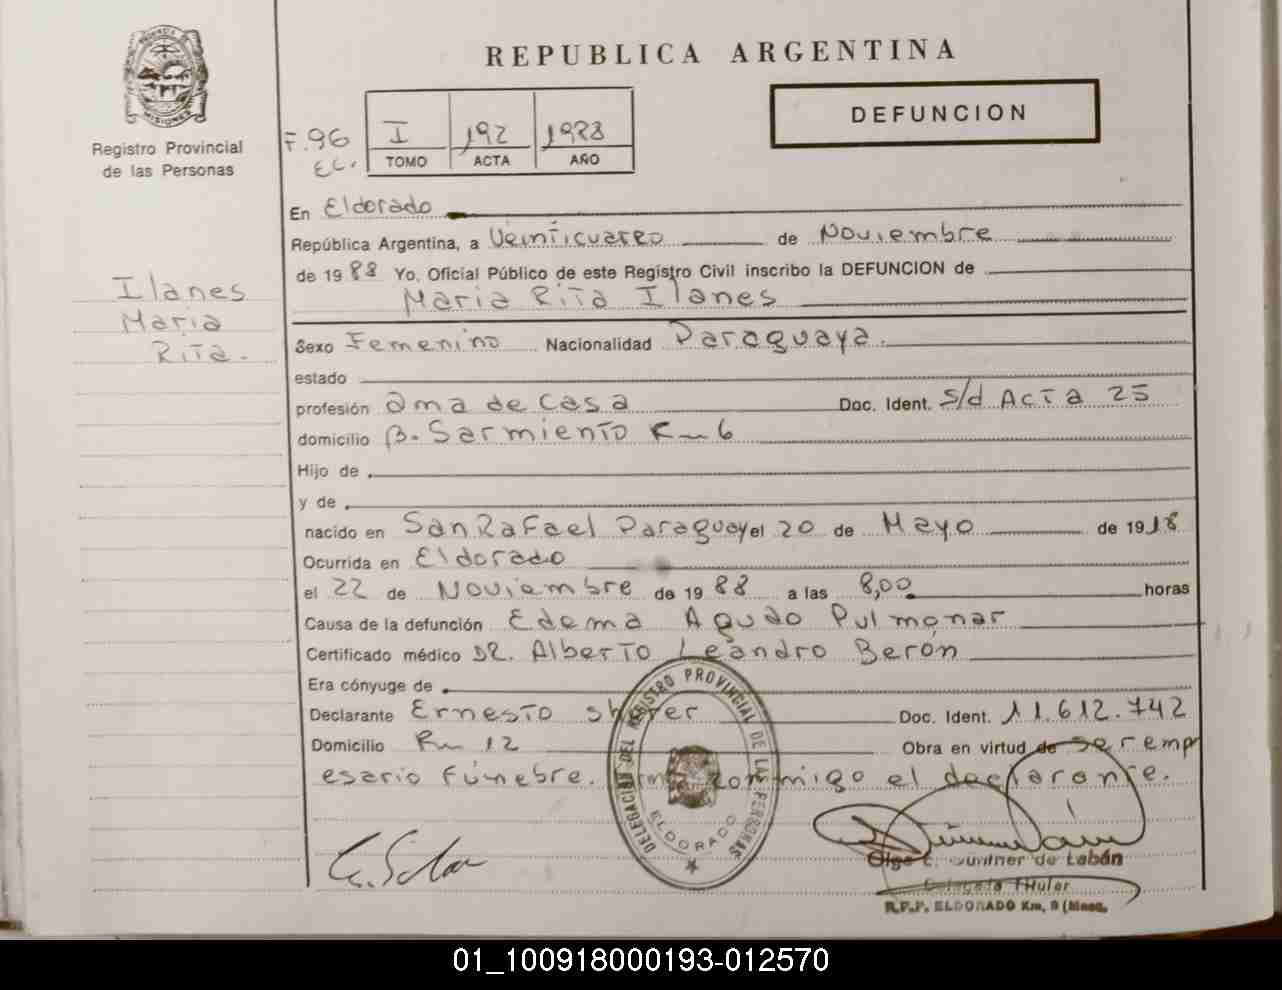 REPUBLICA ARGENTINA
MISIONES
Registro Provincial
de las Personas
DEFUNCION
F.96
I 192 1988
TOMO ACTA AÑO
En Eldorado
República Argentina, a Veinticuatro de Noviembre
de 1988 Yo, Oficial Público de este Registro Civil inscribo la DEFUNCION de
Maria Rita Ilanes
Ilanes
Maria
Rita.
Sexo Femenino Nacionalidad Paraguaya.
estado
profesión ama de casa Doc. Ident. s/d Acta 25
domicilio B. Sarmiento Km 6
Hijo de
y de
nacido en San Rafael Paraguay el 20 de Mayo de 1918
Ocurrida en Eldorado
el 22 de Noviembre de 1988 a las 8,00 horas
Causa de la defunción Edema Agudo Pulmonar
Certificado médico DR. Alberto Leandro Berón
Era cónyuge de
Declarante Ernesto Doc. Ident. 11.612.742
Domicilio Km 12 Obra en virtud de ser emp
esario Fúnebre. Firma conmigo el declarante.
DELEGACION DEL REGISTRO PROVINCIAL DE LAS PERSONAS
ELDORADO
Olga E. de Labán
Delegada Titular
R.P.P. ELDORADO Km. 9 (Mnes.
01_100918000193-012570